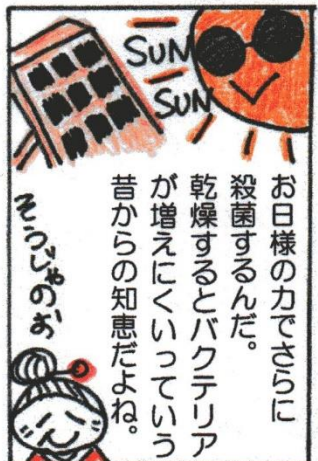 SUN
SUN
お日様の力でさらに
殺菌するんだ。
乾燥するとバクテリア
が増えにくいっていう
昔からの知恵だよね。
そうじゃのお